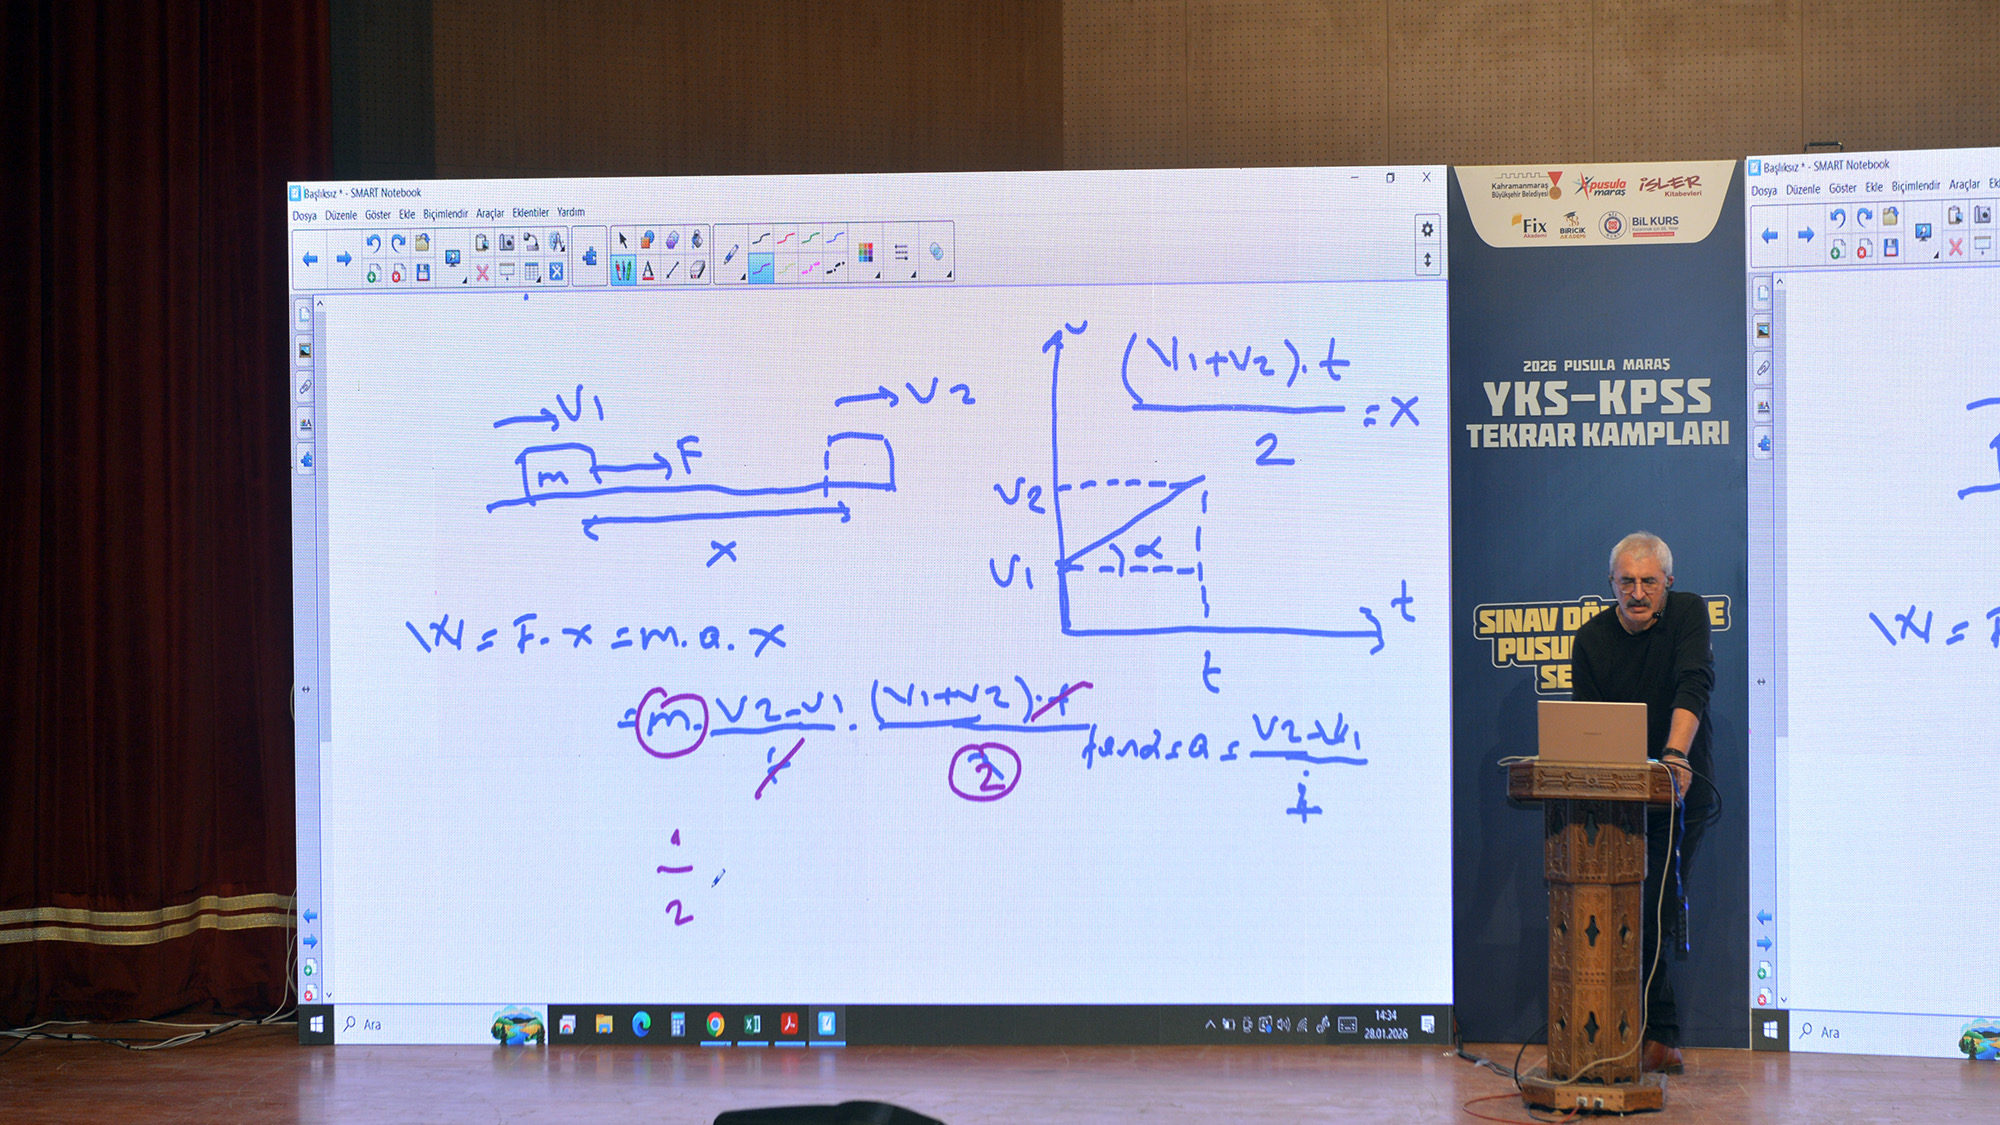 Başlıksız * - SMART Notebook
Dosya Düzenle Göster Ekle Biçimlendir Araçlar Eklentiler Yardım
V1
V2
m
F
x
W = F. x = m. a. x
= m. V2-V1 / t . (V1+V2).t / 2
1 / 2
v
(V1+V2).t / 2 = x
V2
V1
α
t
t
tanα = a = V2-V1 / t
Ara
14:34
28.01.2026
Kahramanmaraş
Büyükşehir Belediyesi
pusula
maraş
İŞLER
Kitabevleri
Fix
Akademi
BİRİCİK
AKADEMİ
BİL KURS
2026 PUSULA MARAŞ
YKS-KPSS
TEKRAR KAMPLARI
SINAV
PUSU
SE
Başlıksız * - SMART Notebook
Dosya Düzenle Göster Ekle Biçimlendir Araçlar
W =
Ara